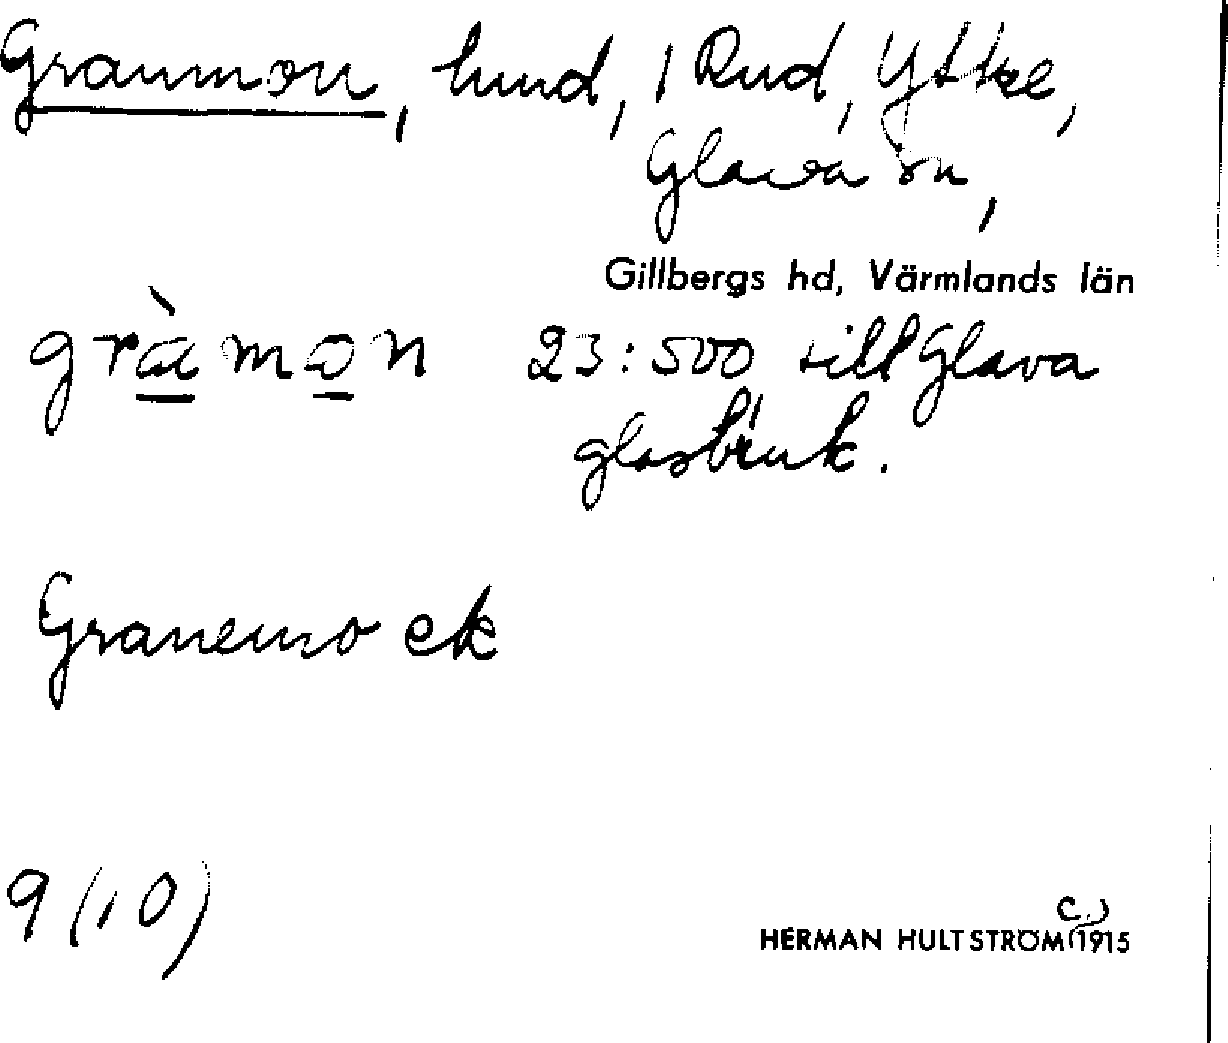 Granmon, hmd, 1 Rud, Yttre,
Glava sn,
Gillbergs hd, Värmlands län
gràmon 23:500 till Glava
glasbruk.
Granemo ek
9 (10)
HERMAN HULTSTRÖM (1915